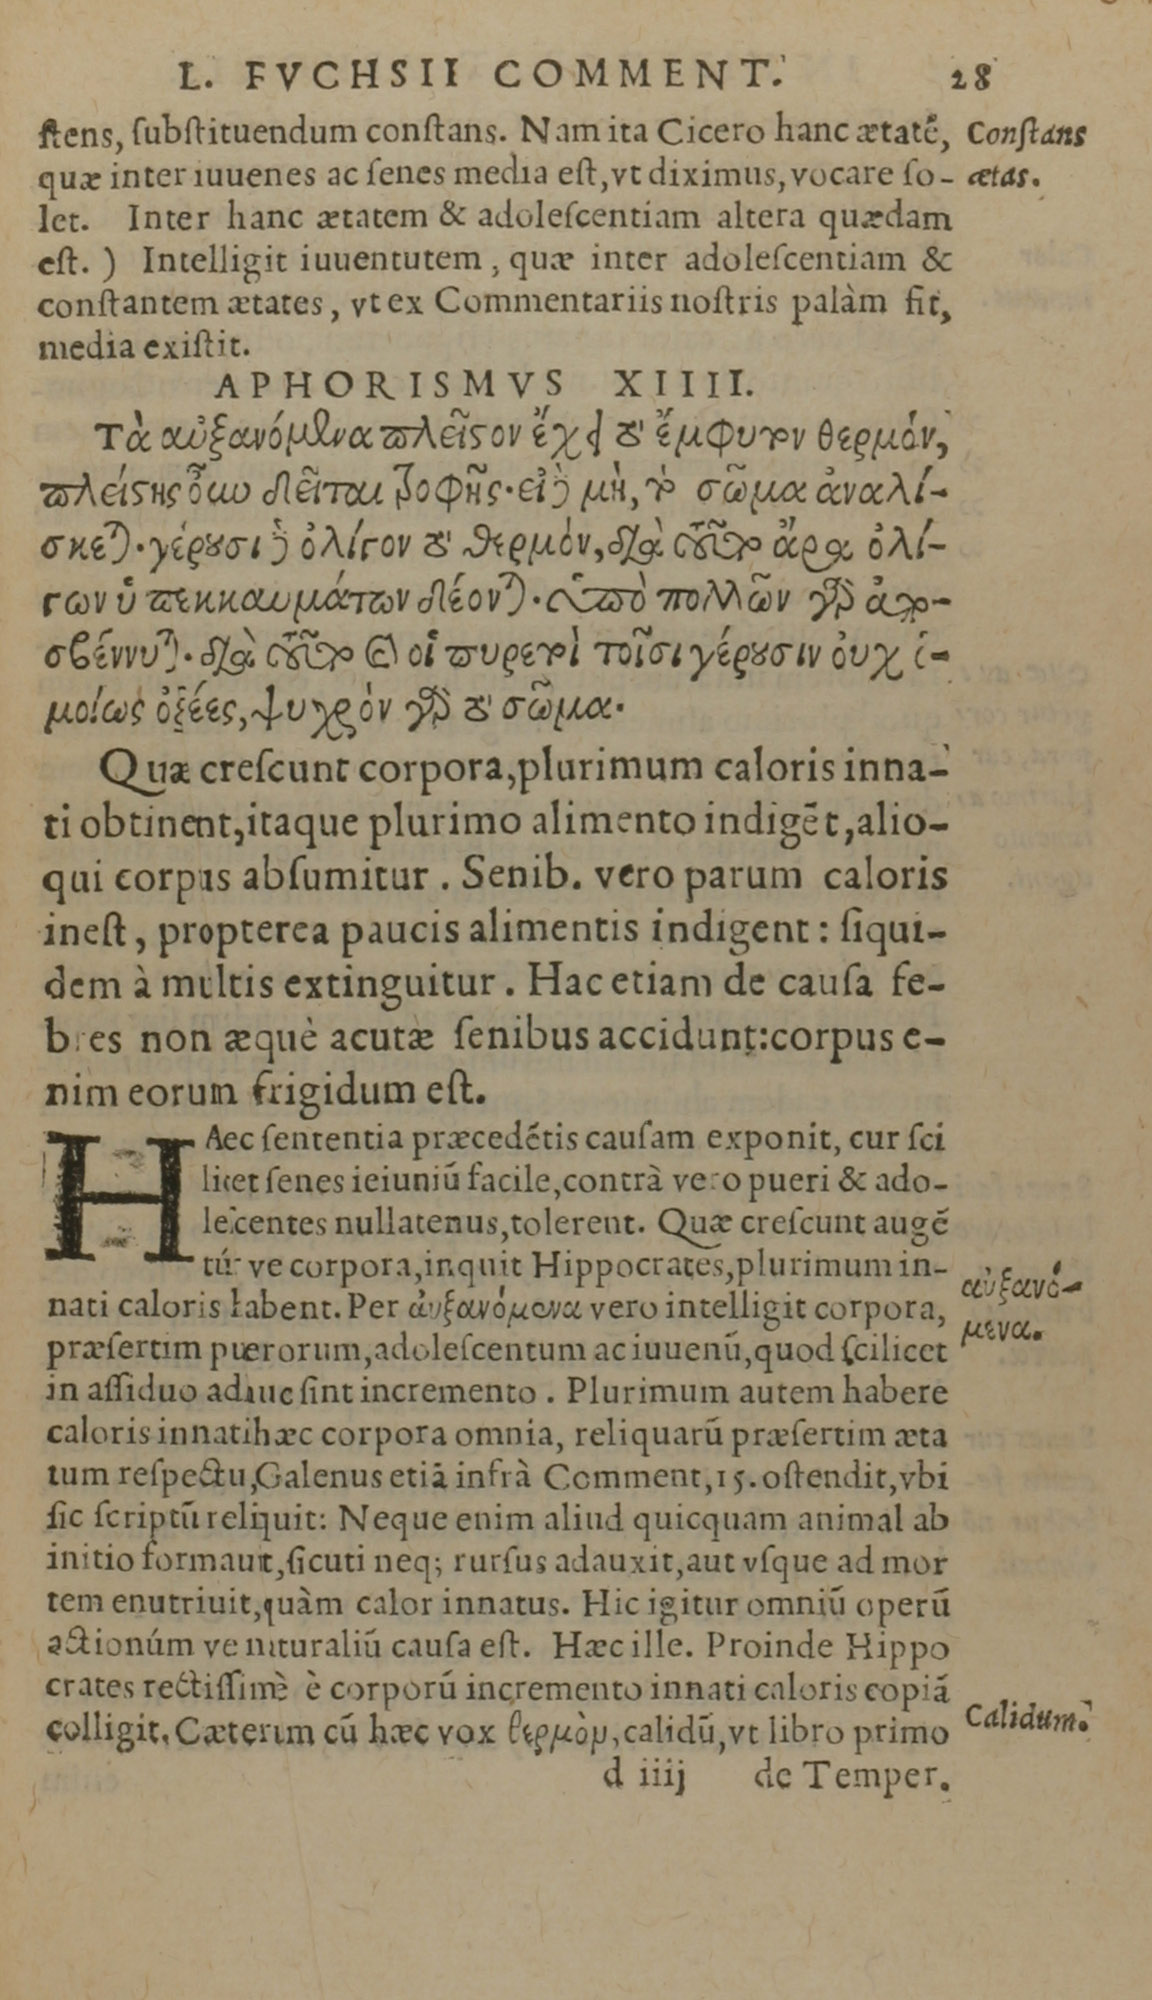 L. FVCHSII COMMENT. 28
ſtens, ſubſtituendum conſtans. Nam ita Cicero hanc ætatē, Conſtans
quæ inter iuuenes ac ſenes media eſt, vt diximus, vocare ſo- ætas.
let. Inter hanc ætatem & adoleſcentiam altera quædam
eſt. ) Intelligit iuuentutem, quæ inter adoleſcentiam &
conſtantem ætates, vt ex Commentariis noſtris palàm fit,
media exiſtit.
APHORISMVS XIIII.
Τὰ αὐξανόμενα πλεῖστον ἔχει τὸ ἔμφυτον θερμόν,
πλείστης οὖν δεῖται τροφῆς· εἰ δὲ μὴ, τὸ σῶμα ἀναλί-
σκεται· γέρουσι δὲ ὀλίγον τὸ θερμόν, διὰ τοῦτο ἄρα ὀλί-
γων ὑπεκκαυμάτων δέονται· ὑπὸ πολλῶν γὰρ ἀπο-
σβέννυται· διὰ τοῦτο καὶ οἱ πυρετοὶ τοῖσι γέρουσιν οὐχ ὁ-
μοίως ὀξέες, ψυχρὸν γὰρ τὸ σῶμα.
Quæ creſcunt corpora, plurimum caloris inna-
ti obtinent, itaque plurimo alimento indigēt, alio-
qui corpus abſumitur. Senib. vero parum caloris
ineſt, propterea paucis alimentis indigent: ſiqui-
dem à multis extinguitur. Hac etiam de cauſa fe-
bres non æquè acutæ ſenibus accidunt: corpus e-
nim eorum frigidum eſt.
HAec ſententia præcedētis cauſam exponit, cur ſci
licet ſenes ieiuniū facile, contrà vero pueri & ado-
leſcentes nullatenus, tolerent. Quæ creſcunt augē
túr ve corpora, inquit Hippocrates, plurimum in- αὐξανό-
nati caloris habent. Per ἀυξανόμενα vero intelligit corpora, μενα.
præſertim puerorum, adoleſcentum ac iuuenū, quod ſcilicet
in aſſiduo adhuc ſint incremento. Plurimum autem habere
caloris innati hæc corpora omnia, reliquarū præſertim æta
tum reſpectu, Galenus etiā infrà Comment, 15. oſtendit, vbi
ſic ſcriptū reliquit: Neque enim aliud quicquam animal ab
initio formauit, ſicuti neq; rurſus adauxit, aut vſque ad mor
tem enutriuit, quàm calor innatus. Hic igitur omniū operū
actionúm ve naturaliū cauſa eſt. Hæc ille. Proinde Hippo
crates rectiſſimè è corporū incremento innati caloris copiā
colligit. Cæterùm cū hæc vox θερμὸν, calidū, vt libro primo Calidum.
d iiij de Temper.